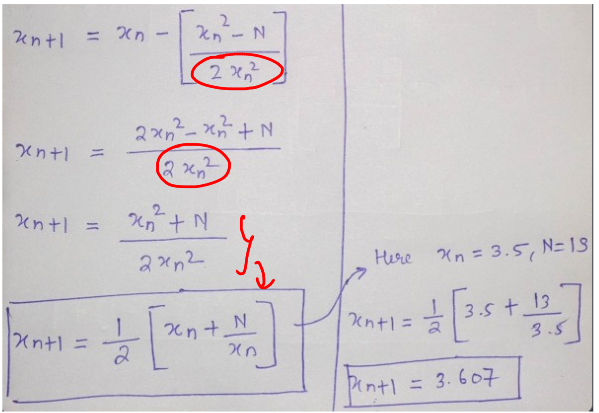 xn+1 = xn - [xn² - N / 2xn²]
xn+1 = 2xn² - xn² + N / 2xn²
xn+1 = xn² + N / 2xn²
xn+1 = 1/2 [xn + N/xn]
Here xn = 3.5, N=13
xn+1 = 1/2 [3.5 + 13/3.5]
xn+1 = 3.607